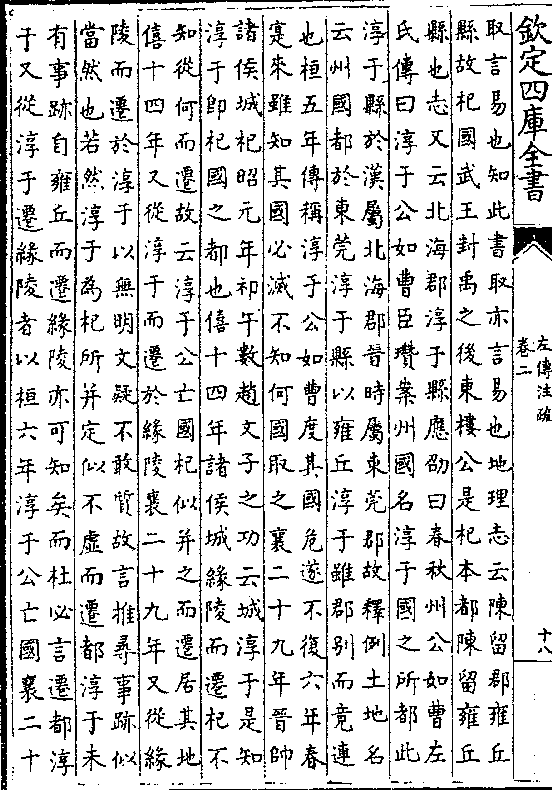 欽定四庫全書
左傳注疏
卷二
十八
取言易也知此書取亦言易也地理志云陳留郡雍丘
縣故杞國武王封禹之後東樓公是杞本都陳留雍丘
縣也志又云北海郡淳于縣應劭曰春秋州公如曹左
氏傳曰淳于公如曹臣瓚案州國名淳于國之所都此
淳于縣於漢屬北海郡晉時屬東莞郡故釋例土地名
云州國都於東莞淳于縣以雍丘淳于雖郡別而竟連
也桓五年傳稱淳于公如曹度其國危遂不復六年春
寔來雖知其國必滅不知何國取之襄二十九年晉帥
諸侯城杞昭元年祁午數趙文子之功云城淳于是知
淳于即杞國之都也僖十四年諸侯城緣陵而遷杞不
知從何而遷故云淳于公亡國杞似并之而遷居其地
僖十四年又從淳于而遷於緣陵襄二十九年又從緣
陵而遷於淳于以無明文疑不敢質故言推尋事跡似
當然也若然淳于為杞所并定似不虛而遷都淳于未
有事跡自雍丘而遷緣陵亦可知矣而杜必言遷都淳
于又從淳于遷緣陵者以桓六年淳于公亡國襄二十